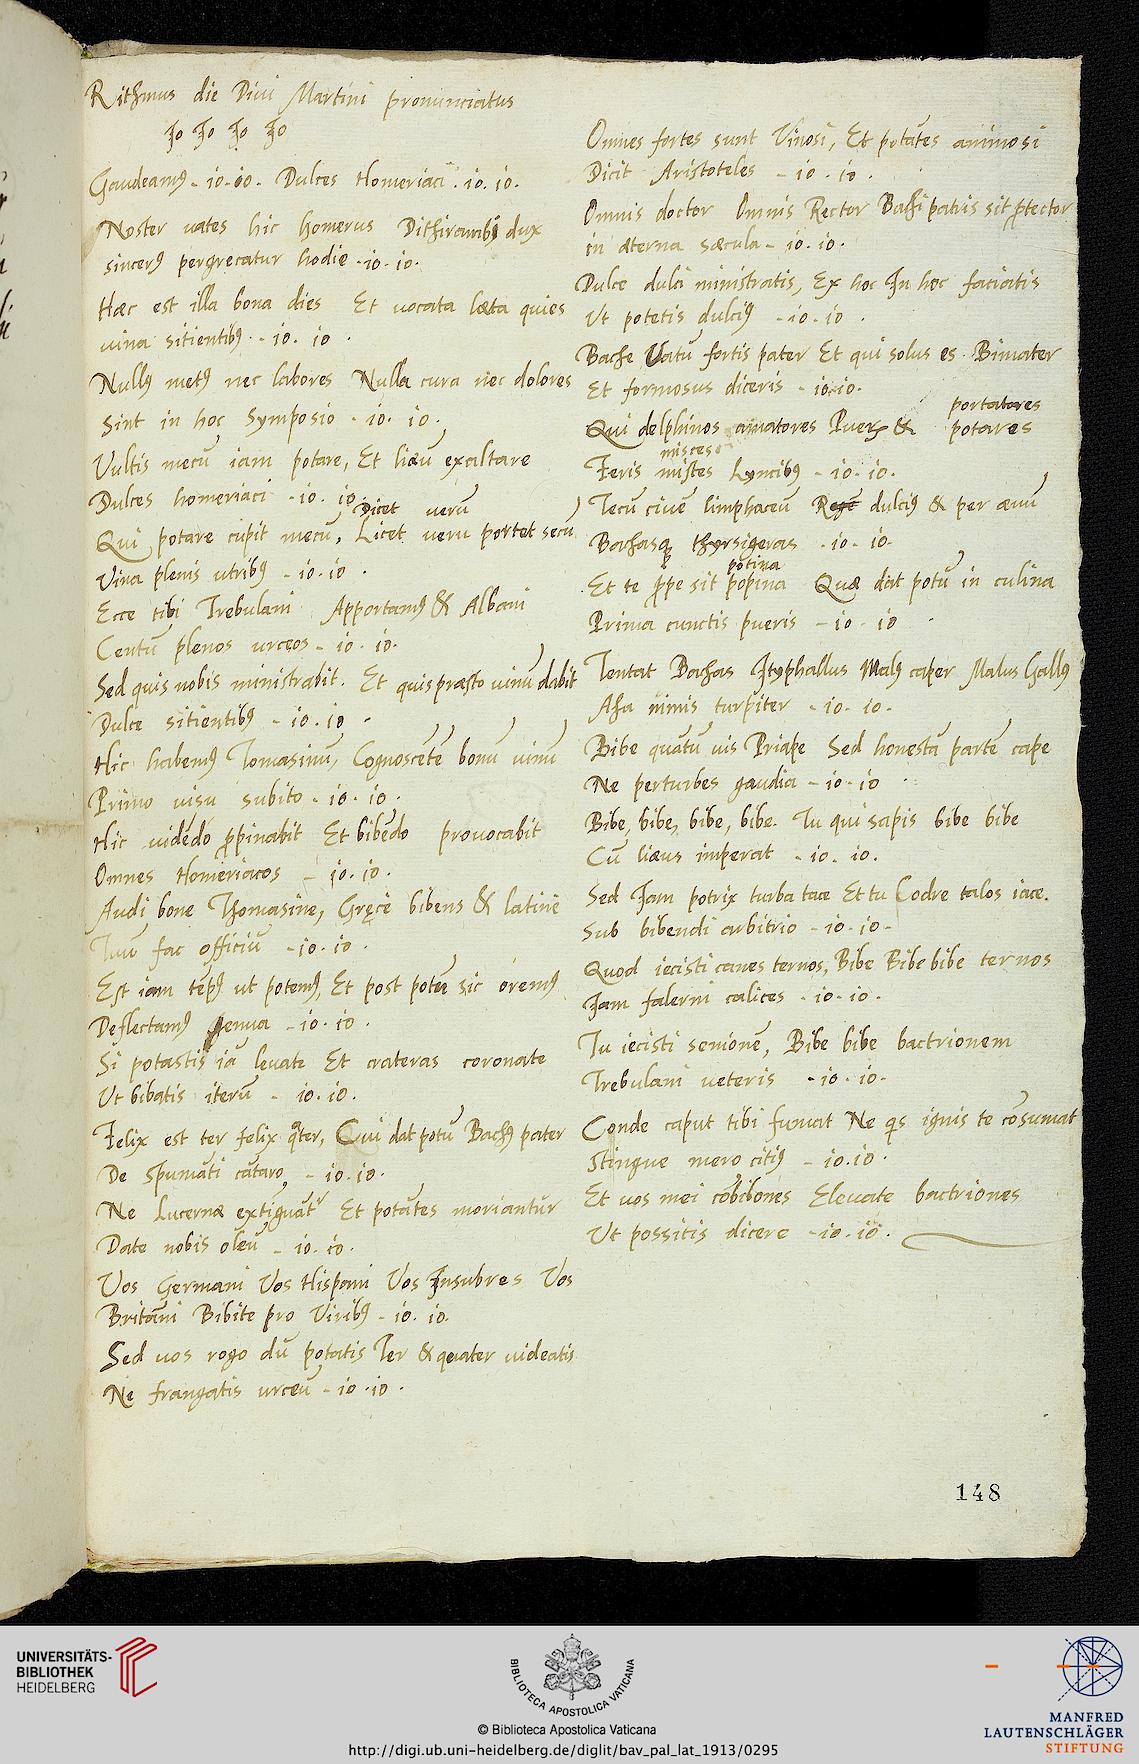 Rithmus die Diui Martini pronunciatus
Io Io Io Io
Gaudeamꝰ - io. io. Dulces Homeriaci. io. io.
Noster uates hic homerus Dithirambi dux
sincerꝰ pergrecatur hodie - io. io.
Hæc est illa bona dies Et uocata læta quies
uina sitientibꝰ - io. io.
Nullꝰ metꝰ nec labores Nulla cura nec dolores
Sint in hoc Symposio - io. io.
Vultis mecū iam potare, Et liæū exaltare
Dulces homeriaci - io. io.
Dicet verū
Qui potare cupit mecū, Licet veru portet secū
Vina plenis utribꝰ - io. io.
Ecce tibi Trebulani Apportamꝰ & Albani
Centū plenos urceos - io. io.
Sed quis nobis ministrabit. Et quis præsto uinū dabit
Dulce sitientibꝰ - io. io.
Hic habemꝰ Tomasinū, Cognoscētē bonū uinū
Primo uisu subito - io. io.
Hic uidēdo ꝓpinabit Et bibēdo prouocabit
Omnes Homeriacos - io. io.
Audi bone Thomasine, Gręcè bibens & latinè
Tuū fac officiū - io. io.
Est iam tēpꝰ ut potemꝰ, Et post potū sic oremꝰ
Deflectamꝰ genua - io. io.
Si potastis iā leuate Et crateras coronate
Ut bibatis iterū - io. io.
Felix est ter felix qͣter, Qui dat potū Bachꝰ pater
De spumāti cātaro, - io. io.
Ne Lucernæ extiguāt Et potātes moriantur
Date nobis oleū - io. io.
Vos Germani Vos Hispani Vos Insubres Vos
Britāni Bibite pro Viribꝰ - io. io.
Sed uos rogo dū potatis Ter & quater uideatis
Ne frangatis urceū - io. io.
Omnes fortes sunt Vinosi, Et potātes animosi
Dicit Aristoteles - io. io.
Omnis doctor Omnis Rector Bachi patris sit ꝓtector
in æterna sæcula - io. io.
Dulce dulci ministratis, Ex hoc In hoc faciatis
Ut potetis dulciꝰ - io. io.
Bache Vatū fortis pater Et qui solus es Bimater
Et formosus diceris - io. io.
portatores
Qui delphinos amatores Puerꝝ & potares
misces
Feris mistes Lyncibꝰ - io. io.
Tecū ciuē limphaceū Regē dulciꝰ & per æuū
Bachasqꝫ thyrsigeras - io. io.
potina
Et te ꝓpe sit popina Quæ dat potū in culina
Prima cunctis pueris - io. io.
Tentat Bachas Ityphallus Malꝰ caper Malus Gallꝰ
Asa nimis turpiter - io. io.
Bibe quātū uis Priape Sed honestā partē cape
Ne perturbes gaudia - io. io.
Bibe, bibe, bibe, bibe. Tu qui sapis bibe bibe
Cū liæus imperat - io. io.
Sed Jam potrix turba tace Et tu Codre talos iace.
Sub bibendi arbitrio - io. io.
Quod iecisti canes ternos, Bibe Bibe bibe ternos
Jam falerni calices - io. io.
Tu iecisti senionē, Bibe bibe bactrionem
Trebulani ueteris - io. io.
Conde caput tibi fumat Ne qͥs ignis te cōsumat
Stingue mero citiꝰ - io. io.
Et uos mei cōbibones Eleuate bactriones
Ut possitis dicere - io. io.
148
UNIVERSITÄTS-
BIBLIOTHEK
HEIDELBERG
BIBLIOTECA APOSTOLICA VATICANA
© Biblioteca Apostolica Vaticana
http://digi.ub.uni-heidelberg.de/diglit/bav_pal_lat_1913/0295
MANFRED
LAUTENSCHLÄGER
STIFTUNG